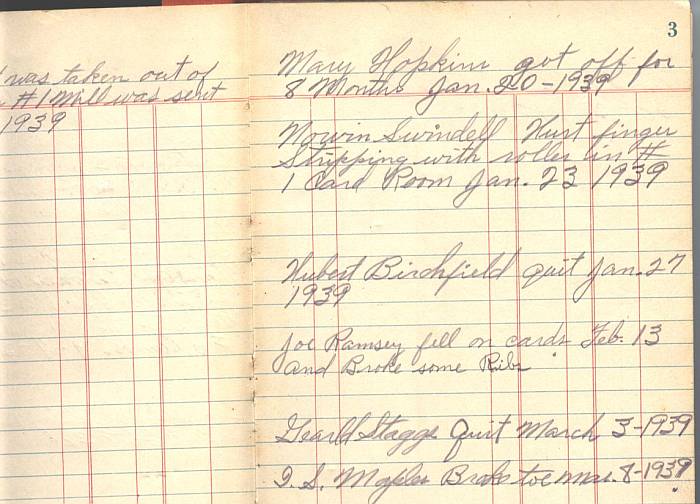 was taken out of
#1 Mill was sent
1939
3
Mary Hopkins got off for
8 Months Jan. 20-1939
Swindell Hurt finger
Stripping with roller in #
1 Card Room Jan. 23 1939
Hubert Birchfield quit Jan. 27
1939
Joe Ramsey fell on cards Feb. 13
and Broke some Ribs
Gearld Staggs Quit March 3-1939
Broke toe Mar. 8-1939